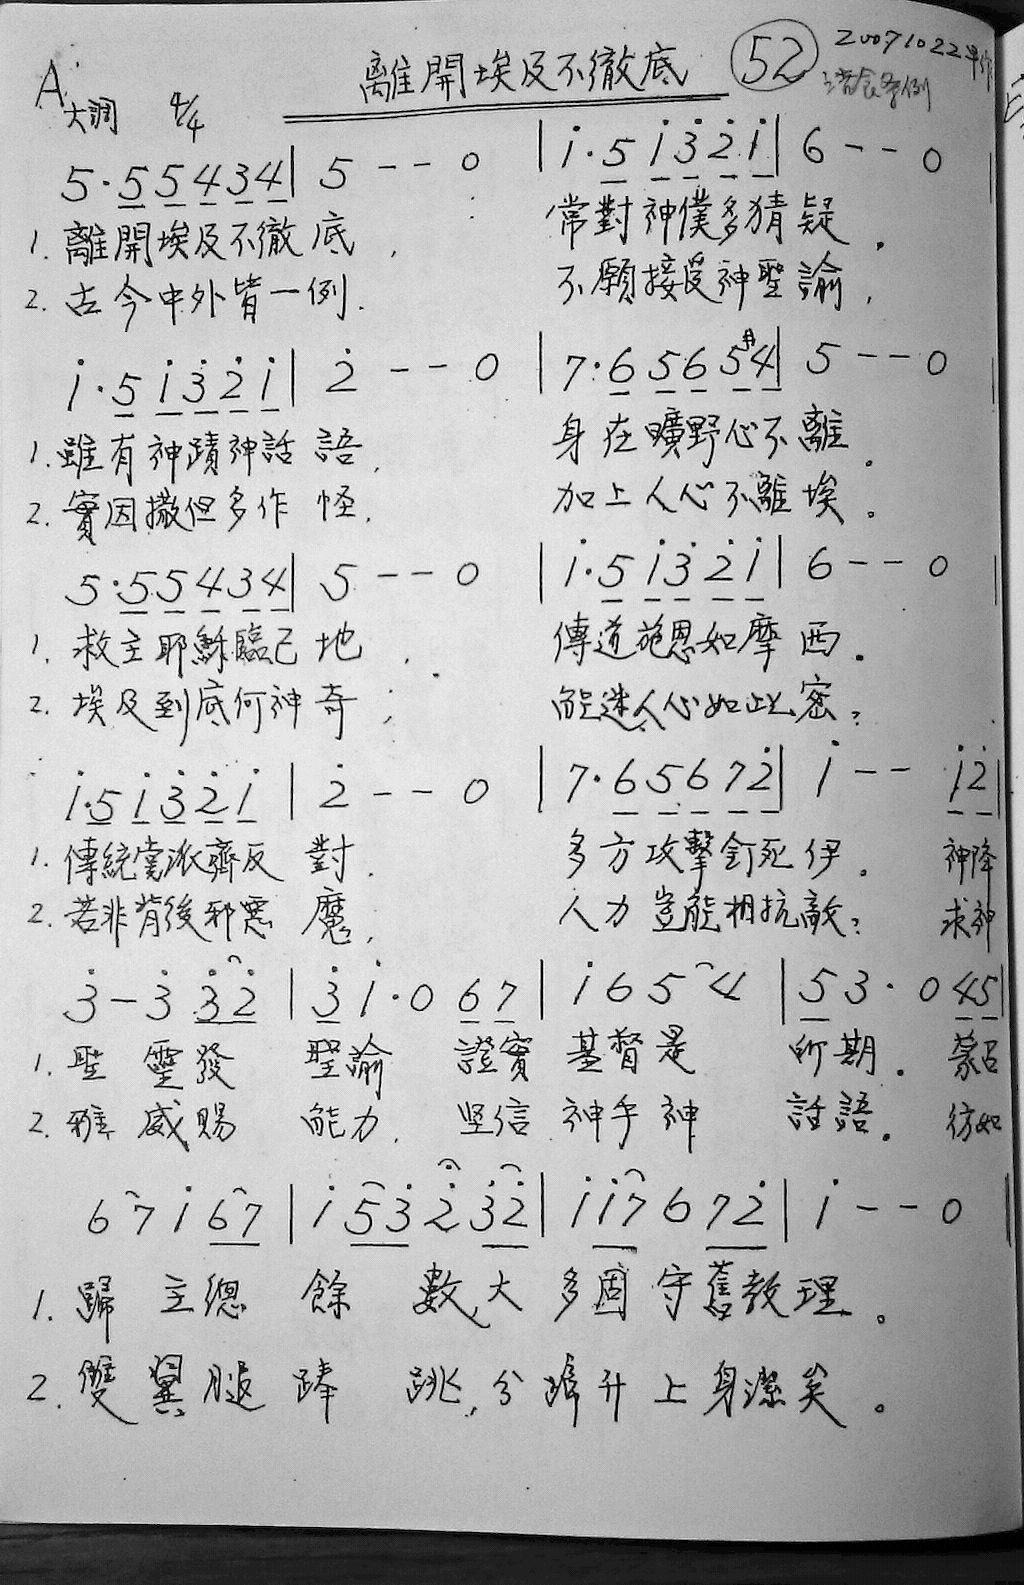 離開埃及不徹底 52 20071022
A 大調 4/4
5·55434| 5--0 |i·5i3̇2̇i| 6--0
1. 離開埃及不徹底, 常對神僕多猜疑。
2. 古今中外皆一例. 不願接受神聖諭,
i·5i3̇2̇i| 2̇--0 |7·6565#4| 5--0
1. 雖有神蹟神話語, 身在曠野心不離。
2. 實因撒但多作怪, 加上人心不離埃。
5·55434| 5--0 |i·5i3̇2̇i| 6--0
1. 救主耶穌臨己地, 傳道施恩如摩西。
2. 埃及到底何神奇, 能迷人心如此密?
i·5i3̇2̇i | 2̇--0 |7·65672̇| i-- i2̇|
1. 傳統黨派齊反對, 多方攻擊釘死伊。 神降
2. 若非背後邪惡魔, 人力豈能相抗敵? 求神
3̇-3̇3̇2̇ |3̇i·067|i654|53·045|
1. 聖靈發聖諭 證實基督是所期。蒙召
2. 雅威賜能力, 坚信神手神話語。彷如
67i67|i5̇3̇2̇3̇2̇|ii7672̇|i--0
1. 歸主總餘數,大多固守舊教理。
2. 雙翼腿踭跳,分蹄升上身潔矣。